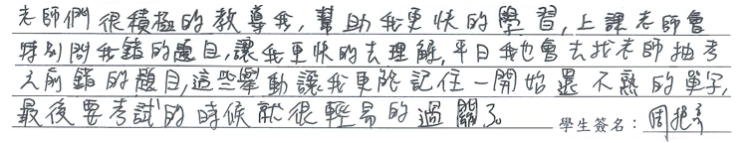 老師們很積極的教導我,幫助我更快的學習,上課老師會
特別問我錯的題目,讓我更快的去理解,平日我也會去找老師抽考
之前錯的題目,這些舉動讓我更能記住一開始還不熟的單字,
最後要考試的時候就很輕易的過關了 學生簽名:周